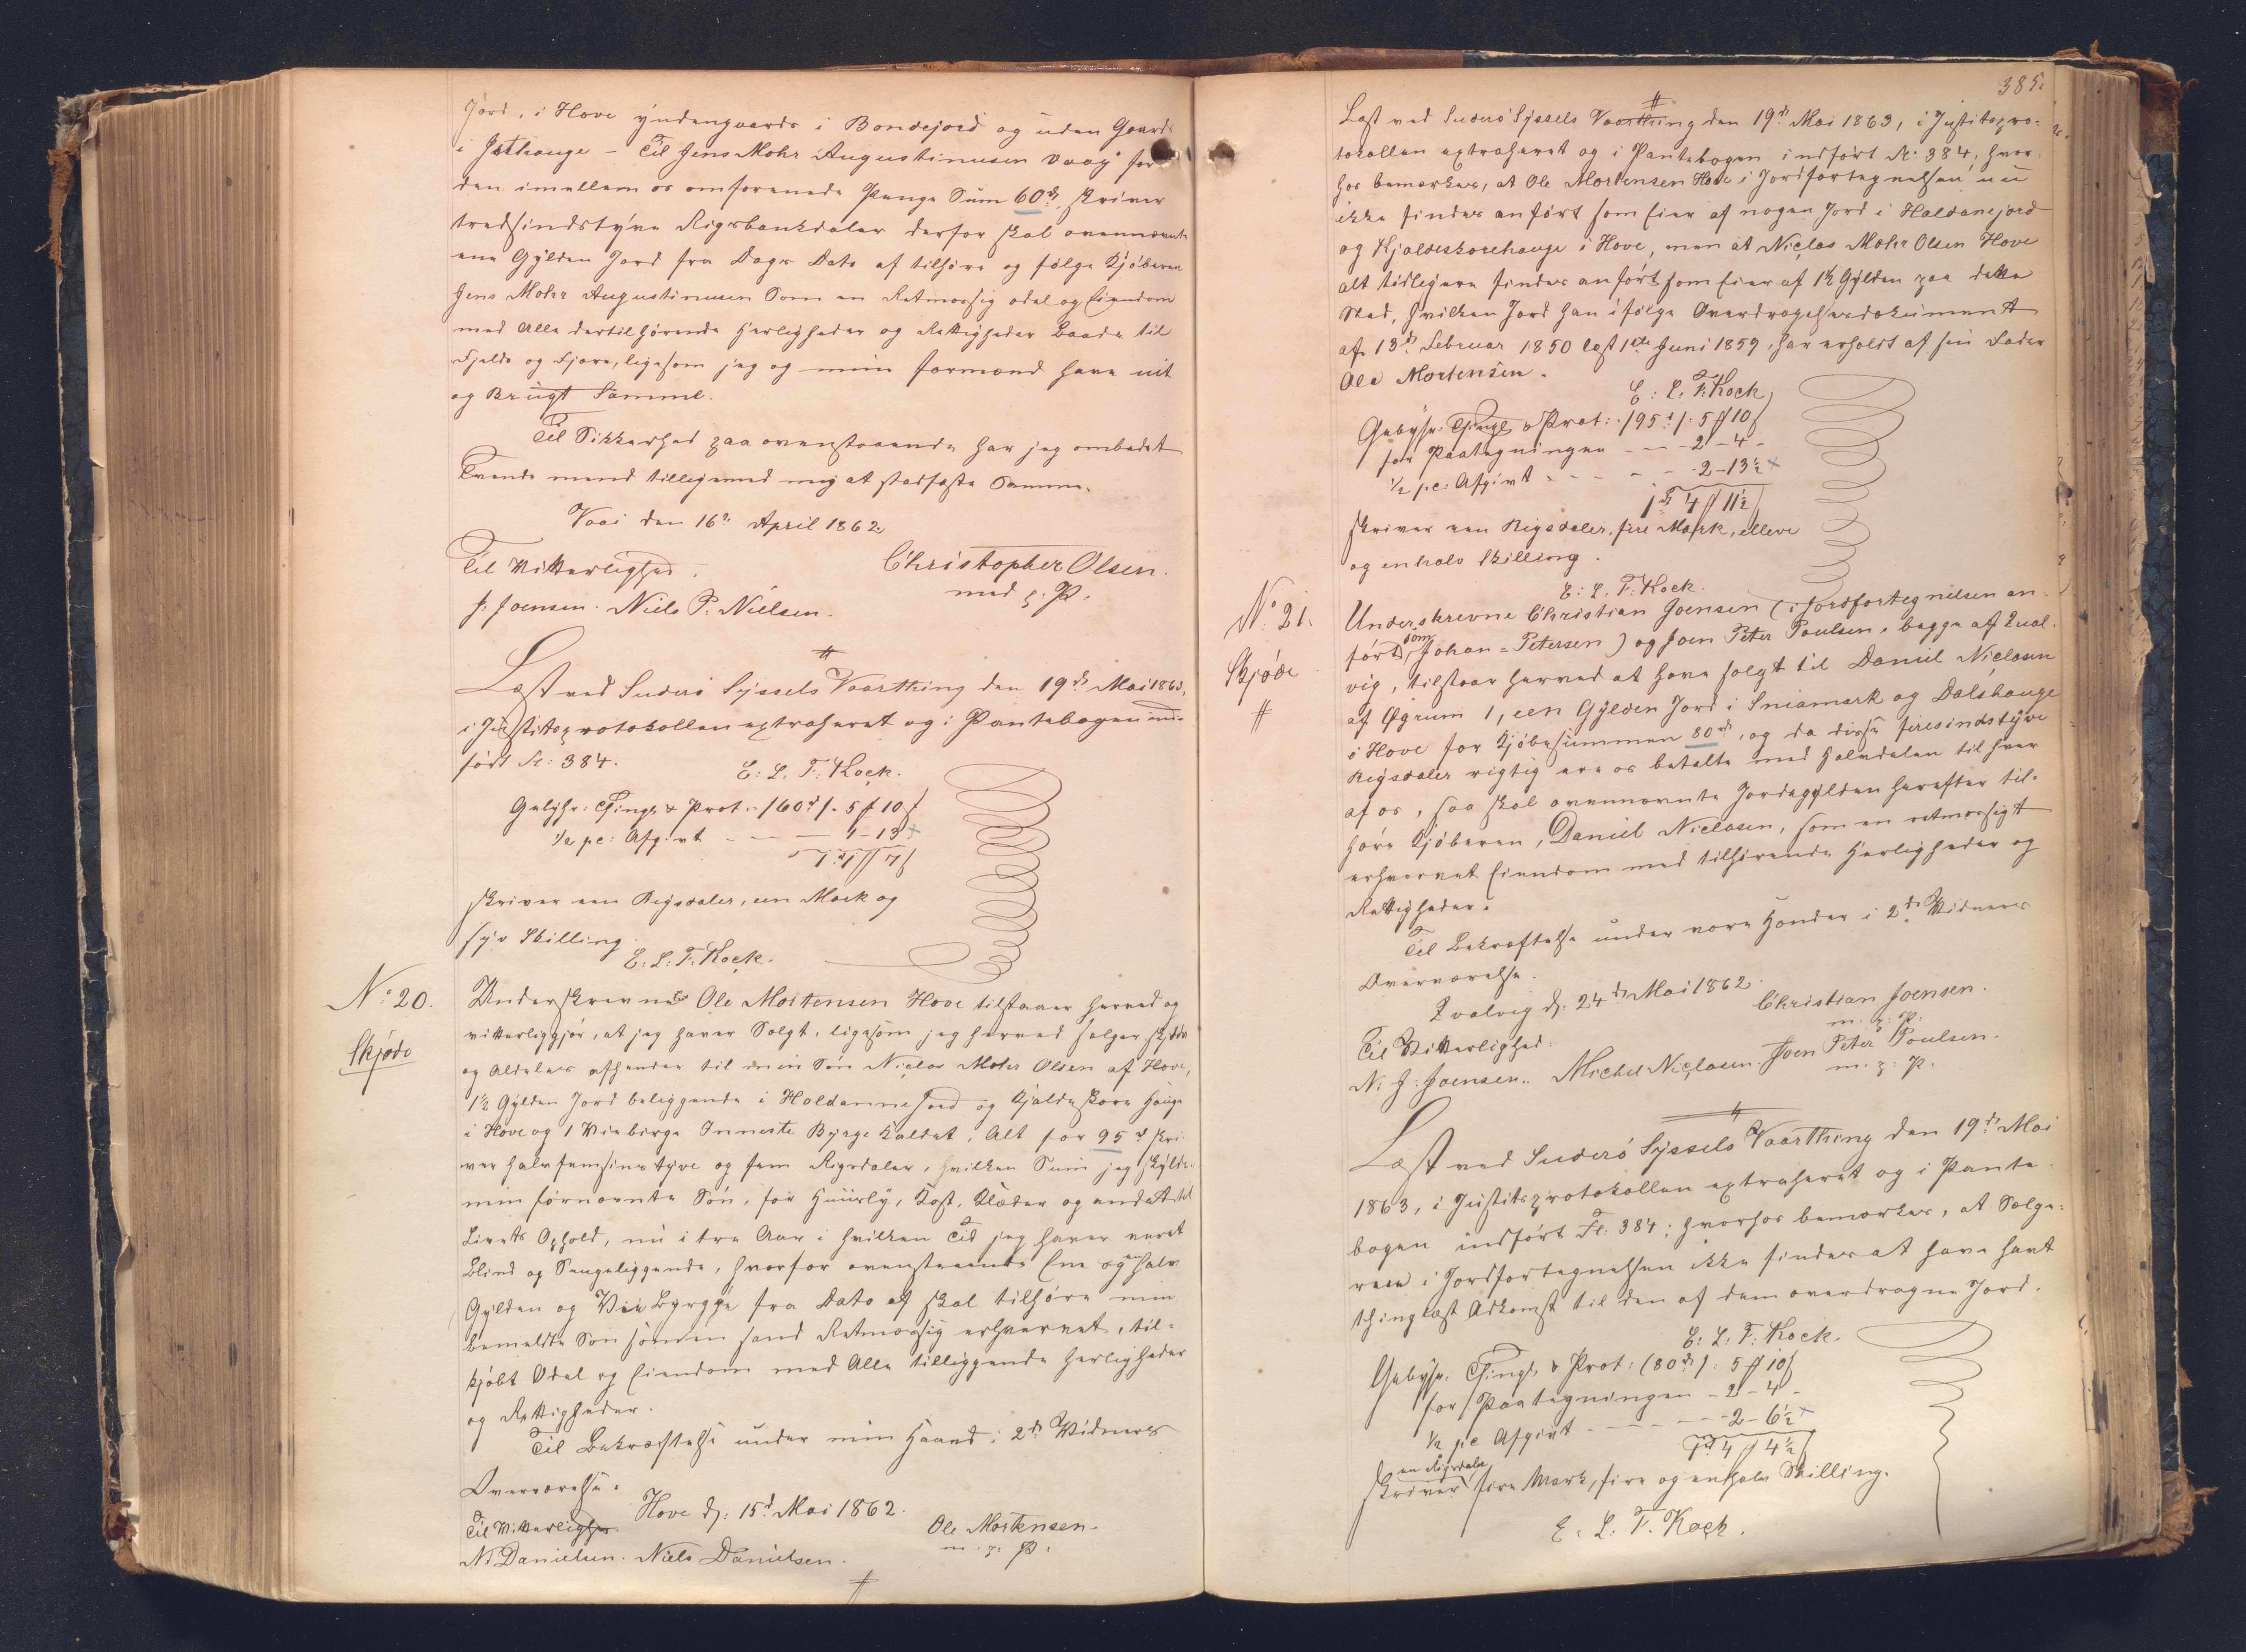 Jord, i Hove ÿndengaards i Bondejord og uden Gaards
i Hatthauge – Til Jens Mohr Augustinusen Vaag for
den imellem os omforenede Penge Sum 60 rd, skriver
tredsindstÿve Rigsbankdaler derfor skal ovennævnte
ene Gÿlden Jord fra Dags Dato af tilhøre og følge Kjöberen
Jens Mohr Augustinusen Som en Retmæssig odel og Eiendom
med Alle dertil hörende Herligheder og Rettigheder Baade til
Fjelds og Fjære, ligesom jeg og mine formænd have nit
og Brügt Samme.
Til Sikkerhed paa ovenstaaende har jeg ombedet
Tvende mænd tilligemed mig at stadfæste Samme.
Vaai den 16de April 1862.
Til Vitterlighed. Christopher Olsen.
J. Joensen. Niels P. Nielsen. med p: P.
Læst ved Suderö Sÿssels Vaarthing den 19de Mai 1863,
i Justitsprotokollen extraheret og i Pantebogen ind-
fört Fl: 384.
E: L. F: Kock.
Gebÿhr: Tingl. & Prot. /60 rd/. 5 ₰ 10 ß
½ pc: Afgivt – – – 1 – 13
1 rd 1 ₰ 7 ß
skriver een Rigsdaler, een Mark og
syv Skilling
E: L: F: Kock.
No 20. Underskrevne Ole Mortensen Hove tilstaaer herved og
Skjöde vitterliggjör, at jeg haver Solgt, ligesom jeg herved sælger skjöder
og Aldeles afhender til min Sön Niclas Mohr Olsen af Hove,
1½ Gÿlden Jord beliggende i Holdannejord og Kjaldeskore Hauge
i Hove og 1 Viebirge Inneste Byrge kaldet, Alt for 95 rd skri-
ver halvfemsinstÿve og fem Rigsdaler, hvilken Sum jeg skÿlder
min förnævnte Sön, for Huusly, Kost, Klæder og andet til
Livets Ophold, nu i tre Aar i hvilken Tid jeg haver været
Blind og Sengeliggende, hvorfor ovenstaaende Ene og en halv
Gÿlden og Vie Byrgge fra Dato af skal tilhöre min
bemeldte Sön som en sand Retmæssig erhvervet, til-
kjöbt Odel og Eiendom med Alle tilliggende herligheder
og Rettigheder.
Til Bekræftelse under min Haand i 2de Vidners
Overværelse.
Hove d: 15d Mai 1862.
Til Vitterlighed Ole Mortensen.
N Danielsen. Niels Danielsen. m. p: P.
385.
Læst ved Suderö Sÿssels Vaarthing den 19de Mai 1863, i Justitspro-
tokollen extraheret og i Pantebogen indfört Fl: 384; hvor-
hos bemærkes, at Ole Mortensen Hove i Jordfortegnelsen nu
ikke findes anfört som Eier af nogen Jord i Haldanejord
og Kjaldeskorehauge i Hove, men at Niclas Mohr Olsen Hove
alt tidligere findes anfört som Eier af 1½ Gÿlden paa dette
Sted, hvilken Jord han ifölge Overdragelsesdokument
af 13de Februar 1850 læst 1ste Juni 1859, har erholdt af sin Fader
Ole Mortensen.
E: L. F. Kock
Gebÿhr: Tingl. & Prot: /95 rd/. 5 ₰ 10 ß
for Paategningen – – 2 – 4 –
½ pc: Afgivt – – – 2 – 13½
1 rd 4 ₰ 11½ ß
skriver een Rigsdaler, fire Mark, elleve
og en halv Skilling.
E: L. F. Kock.
No 21. Underskrevne Christian Joensen (i Jordfortegnelsen an-
Skjöde fört som Johan = Petersen) og Joen Peter Poulsen, begge af Qual-
vig, tilstaar herved at have solgt til Daniel Niclasen
af Øgrum 1, een Gÿlden Jord i Sniamark og Dalshauge
i Hove for Kjöbesummen 80 rd, og da disse firesindstÿve
Rigsdaler rigtig ere os betalte med halvdelen til hver
af os, saa skal ovennævnte Jordegÿlden herefter til-
höre Kjöberen, Daniel Niclasen, som en retmæssigt
erhvervet Eiendom med tilhörende Herligheder og
Rettigheder.
Til Bekræftelse under vore Hænder i 2de Vidners
Overværelse.
Qvalvig d: 24de Mai 1862.
Christian Joensen.
m. p. P.
Til Vitterlighed: Joen Peter Poulsen.
N. J. Joensen. Michel Niclasen. m. p. P.
Læst ved Suderö Sÿssels Vaarthing den 19de Mai
1863, i Justitsprotokollen extraheret og i Pante-
bogen indfört Fl: 384; hvorhos bemærkes, at Sælge-
rne i Jordfortegnelsen ikke findes at have havt
thinglæst Adkomst til den af dem overdragne Jord.
E: L. F: Kock.
Gebÿhr: Tingl. & Prot: (80 rd): 5 ₰ 10 ß
for Paategningen – 2 – 4 –
½ pc Afgivt – – – 2 – 6½
1 rd 4 ₰ 4½ ß
skriver en Rigsdaler fire Mark, fire og en halv Skilling.
E: L. F. Kock.